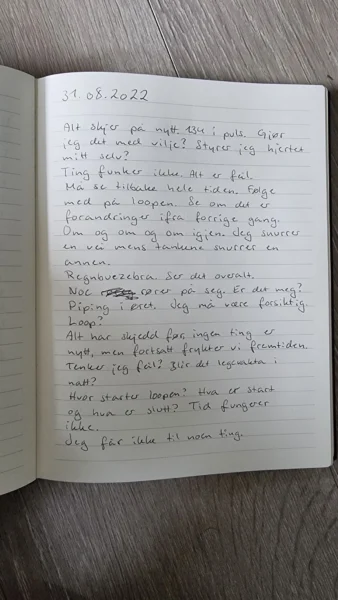 31.08.2022
Alt skjer på nytt. 134 i puls. Gjør
jeg det med vilje? Styrer jeg hjertet
mitt selv?
Ting funker ikke. Alt er feil.
Må se tilbake hele tiden. Følge
med på loopen. Se om det er
forandringer ifra forrige gang.
Om og om og om igjen. Jeg snurrer
en vei mens tankene snurrer en
annen.
Regnbuezebra. Ser det overalt.
Noe rører på seg. Er det meg?
Piping i øret. Jeg må være forsiktig.
Loop?
Alt har skjedd før, ingen ting er
nytt, men fortsatt frykter vi fremtiden.
Tenker jeg feil? Blir det legevakta i
natt?
Hvor starter loopen? Hva er start
og hva er slutt? Tid fungerer
ikke.
Jeg får ikke til noen ting.